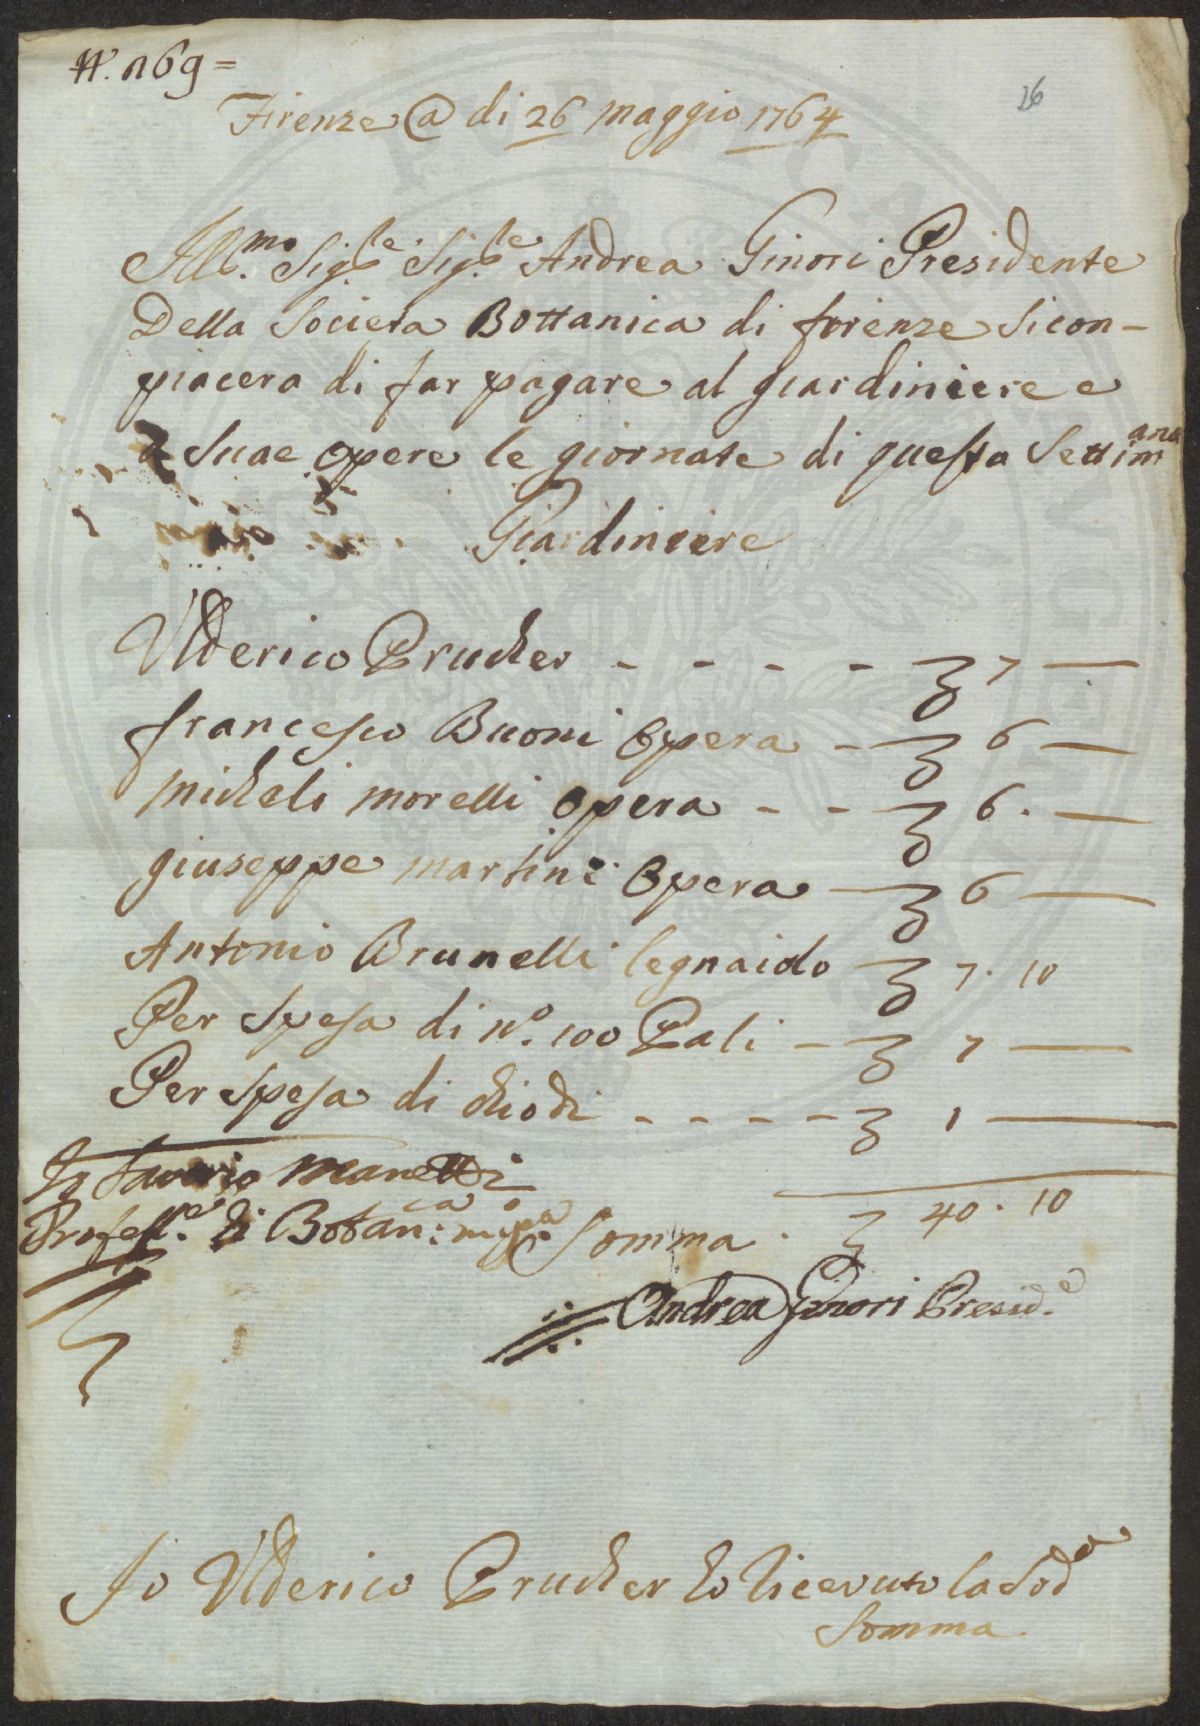 N. 169=
26
Firenze @ di 26 maggio 1764
Ill.mo Sig.re Sig.re Andrea Ginori Presidente
Della Societa Bottanica di firenze si con-
piacera di far pagare al giardiniere e
a suae opere le giornate di questa Settimana
Giardiniere
Vlderico Prucher - - - - 7 —
francesco Buoni Opera - 6 —
micheli morelli opera - - 6. —
giuseppe martini Opera 6 —
Antonio Brunelli legnaiolo 7. 10
Per spesa di n.o 100 Pali - 7 —
Per spesa di chiodi - - - - 1 —
Io Saverio Manetti
Profess.e di Botan.ca
Somma. 40. 10
Andrea Ginori Presid.e
Io Vlderico Prucher ho ricevuto la sod.a
Somma.